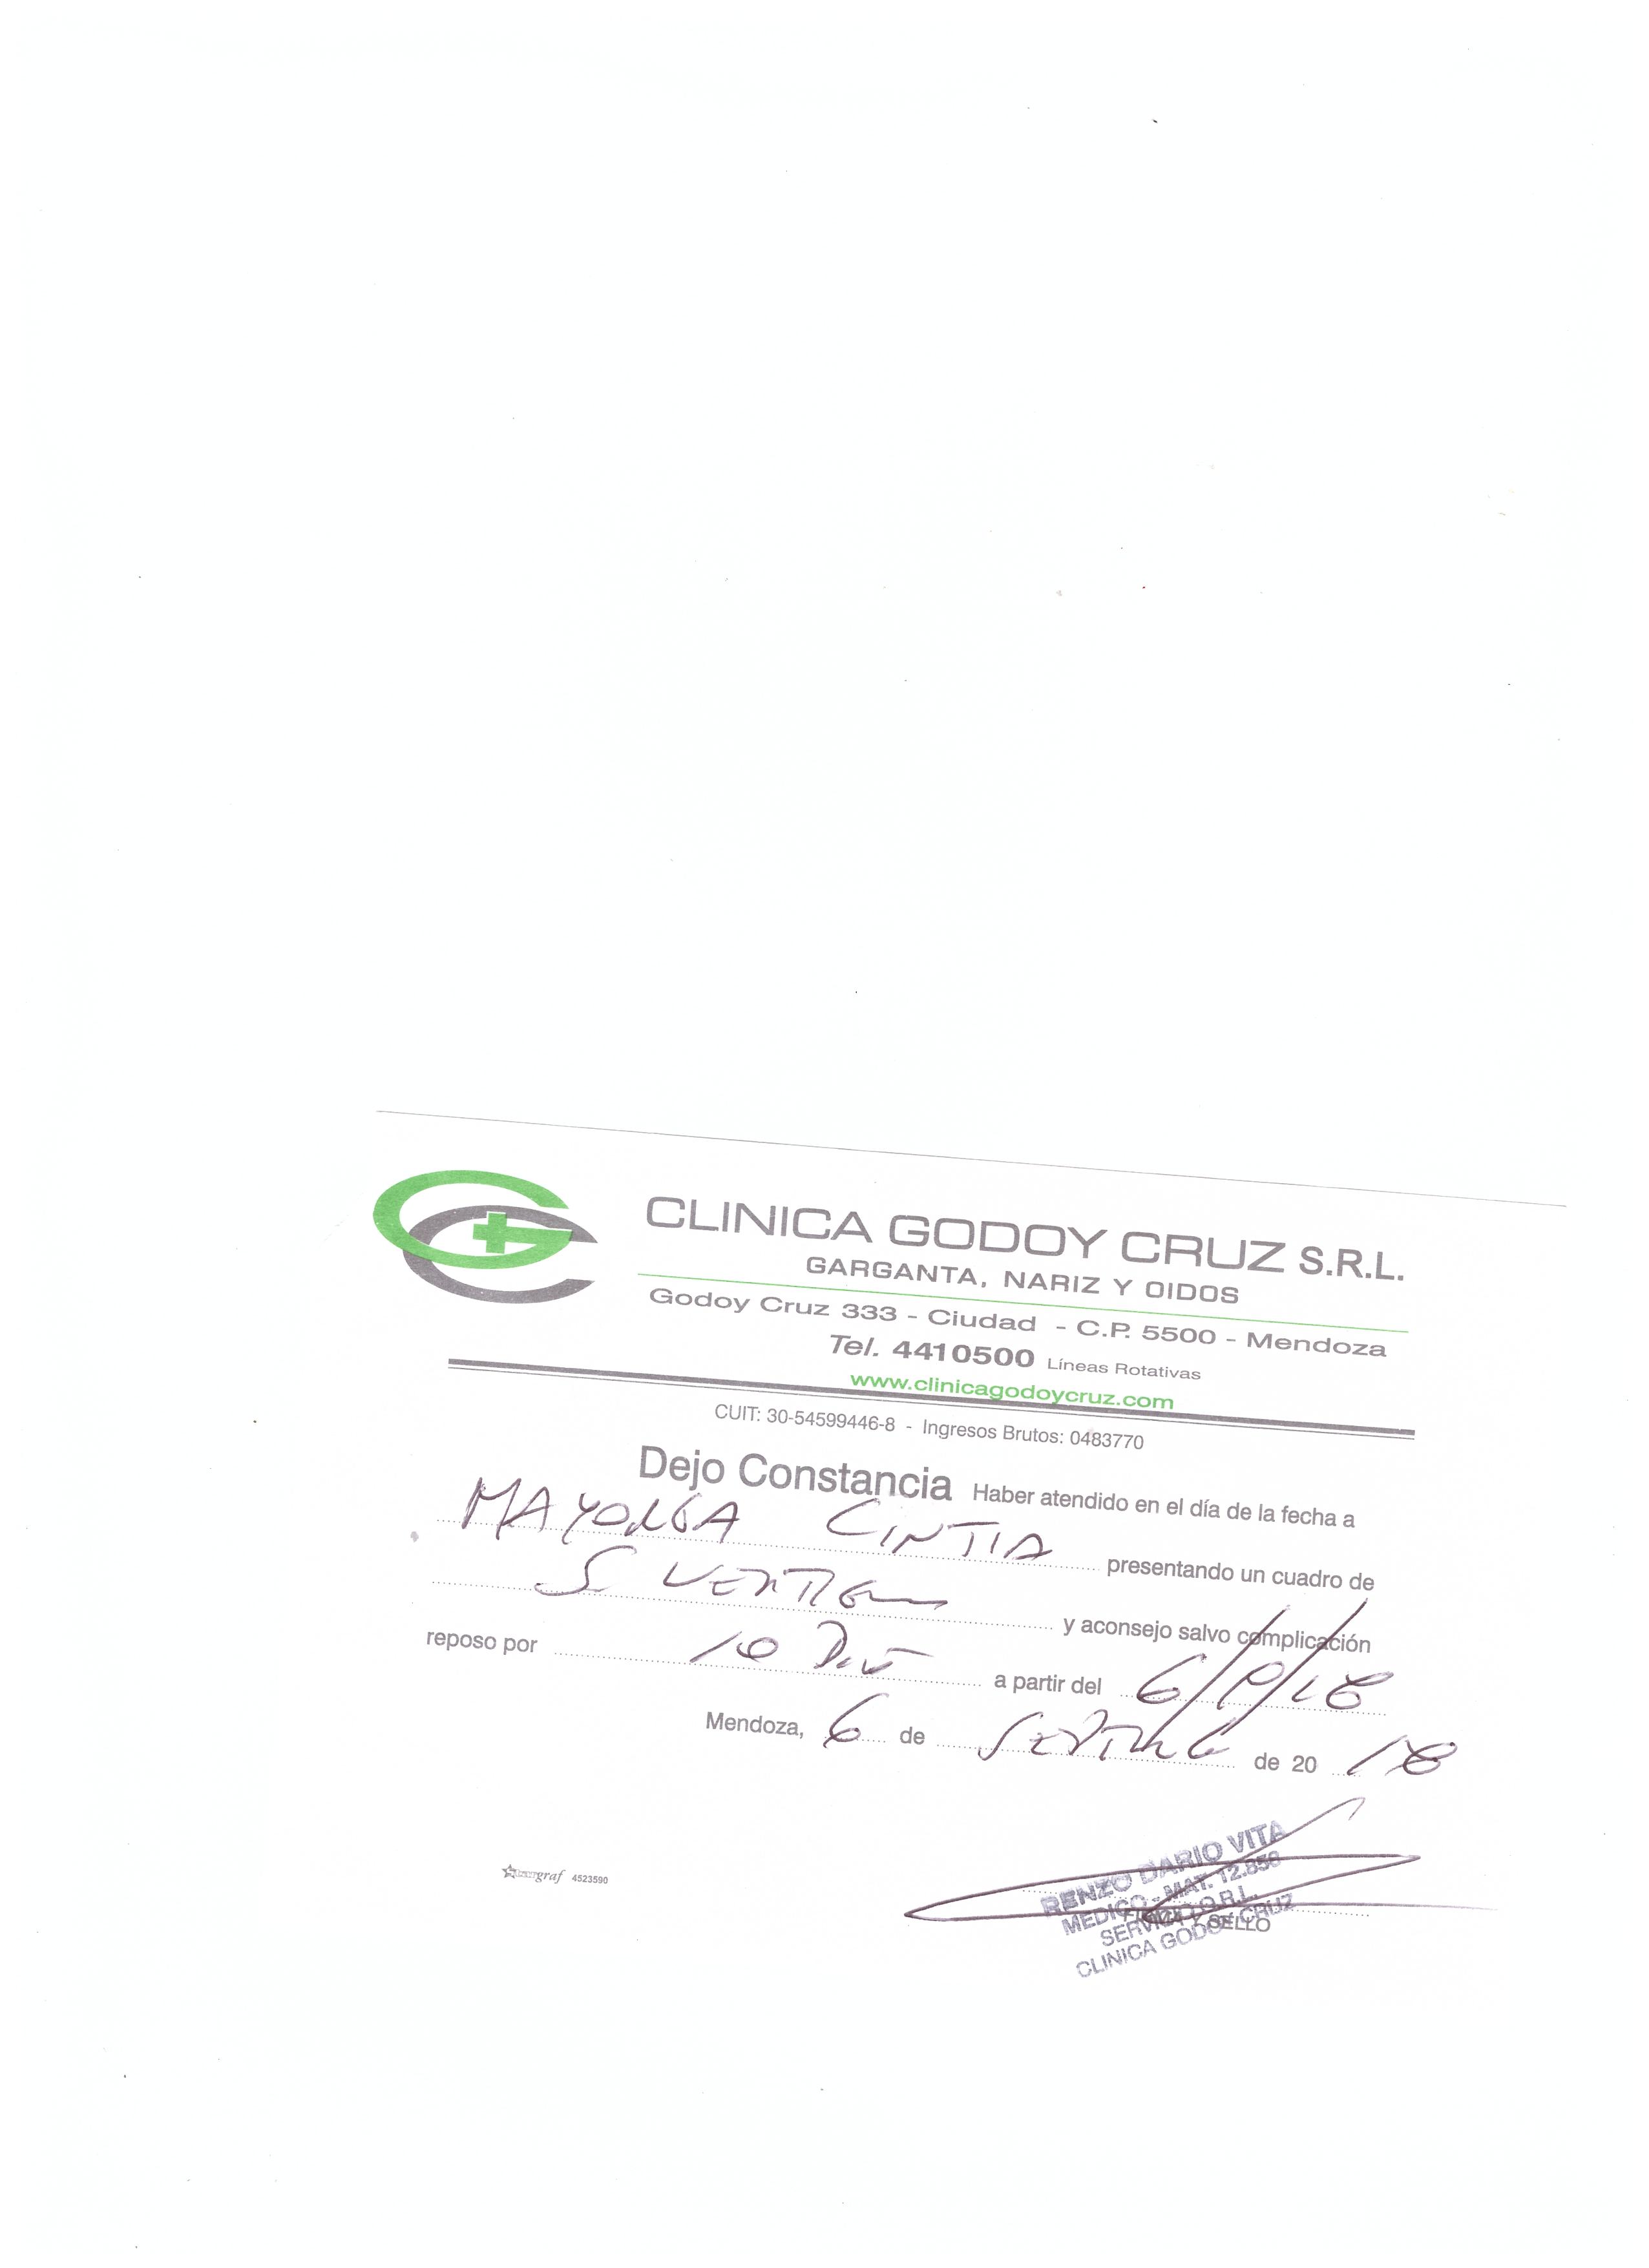 CLINICA GODOY CRUZ S.R.L.
GARGANTA, NARIZ Y OIDOS
Godoy Cruz 333 - Ciudad - C.P. 5500 - Mendoza
Tel. 4410500 Líneas Rotativas
www.clinicagodoycruz.com
CUIT: 30-54599446-8 - Ingresos Brutos: 0483770
Dejo Constancia Haber atendido en el día de la fecha a
MAYORGA CINTIA presentando un cuadro de
S y aconsejo salvo complicación
reposo por 10 a partir del 6/9/18
Mendoza, 6 de de 20 18
RENZO DARIO VITA
MEDICO - MAT. 12.856
FIRMA Y SELLO
CLINICA GODOY CRUZ
graf 4523590